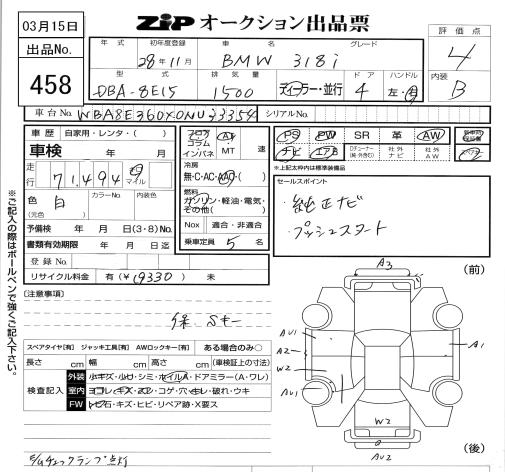 03月15日
ZIP オークション出品票
出品No.
458
年式 初年度登録 車名 グレード
28年11月 BMW 318i
型式 排気量 ドア ハンドル
DBA-8E15 1500 ディーラー・並行 4 左・右
評価点
4
内装
B
車台No. WBA8E360X0NU33354 シリアルNo.
車歴 自家用・レンタ・( )
車検 年 月
走行 71,494 キロ マイル
色 白 カラーNo. 内装色
(元色)
予備検 年 月 日(3・8)No.
書類有効期限 年 月 日迄
登録No.
リサイクル料金 有(¥9330) 未
フロア コラム インパネ AT MT
冷房
無・C・AC・AAC・( )
燃料
ガソリン・軽油・電気・その他( )
Nox 適合・非適合
乗車定員 5 名
PS PW SR 革 AW
ナビ エアB 社外ナビ 社外AW
※上記太枠内は標準装備品
セールスポイント
・純正ナビ
・プッシュスタート
※ご記入の際はボールペンで強くご記入下さい。
[注意事項]
保 Sキー
スペアタイヤ[有] ジャッキ工具[有] AWロックキー[有] ある場合のみ○
長さ cm 幅 cm 高さ cm (車検証上の寸法)
検査記入
外装 小キズ・小ヒ・シミ・ホイルA・ドアミラー(A・ワレ)
室内 ヨゴレ・キズ・スレ・コゲ・穴・キレ・破れ・ウキ
FW トビ石・キズ・ヒビ・リペア跡・X要ス
E/Gチェックランプ点灯
(前)
A3
AU1
A2
W2
AU1
A1
W2
AU2
(後)